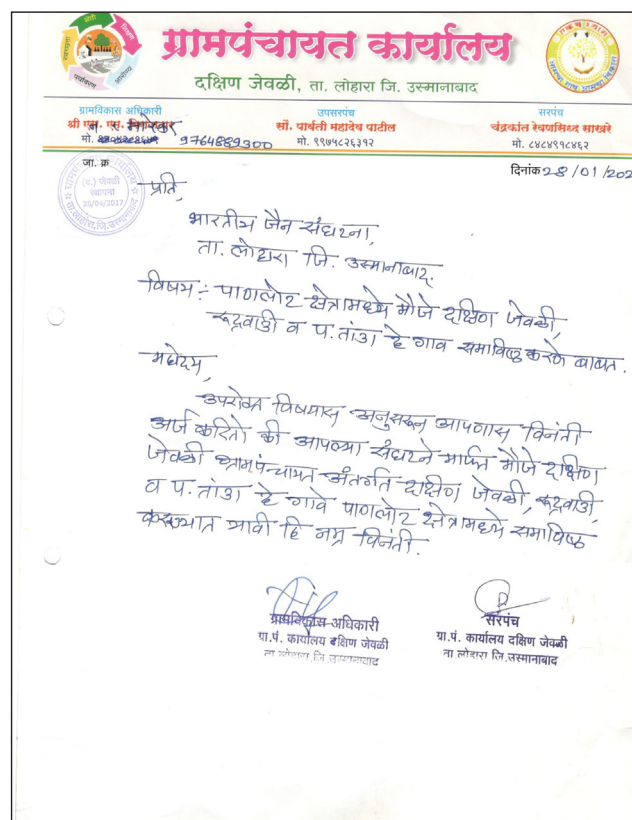 ग्रामपंचायत कार्यालय
दक्षिण जेवळी, ता. लोहारा जि. उस्मानाबाद
ग्रामविकास अधिकारी
श्री एस. एस.
मो.
9764889300
उपसरपंच
सौ. पार्वती महादेव पाटील
मो. ९९७५८२६३१२
सरपंच
चंद्रकांत रेवणसिध्द साखरे
मो. ८४८४९१८४६२
जा. क्र
दिनांक २८/01/202
(द.) जेवळी
स्थापना
20/04/2017
प्रति,
भारतीय जैन संघटना,
ता. लोहारा जि. उस्मानाबाद.
विषय :- पाणलोट क्षेत्रामध्ये मौजे दक्षिण जेवळी,
रूद्रवाडी व प. तांडा हे गाव समाविष्ठ करणे बाबत.
महोदय,
उपरोक्त विषयास अनुसरून आपणास विनंती
अर्ज करितो की आपल्या संघटने मार्फत मौजे दक्षिण
जेवळी ग्रामपंन्चायत अंतर्गत दक्षिण जेवळी, रूद्रवाडी,
व प. तांडा हे गावे पाणलोट क्षेत्रामध्ये समाविष्ठ
करण्यात यावी हि नम्र विनंती.
ग्रामविकास अधिकारी
ग्रा.पं. कार्यालय दक्षिण जेवळी
ता लोहारा जि.उस्मानाबाद
सरपंच
ग्रा.पं. कार्यालय दक्षिण जेवळी
ता लोहारा जि.उस्मानाबाद